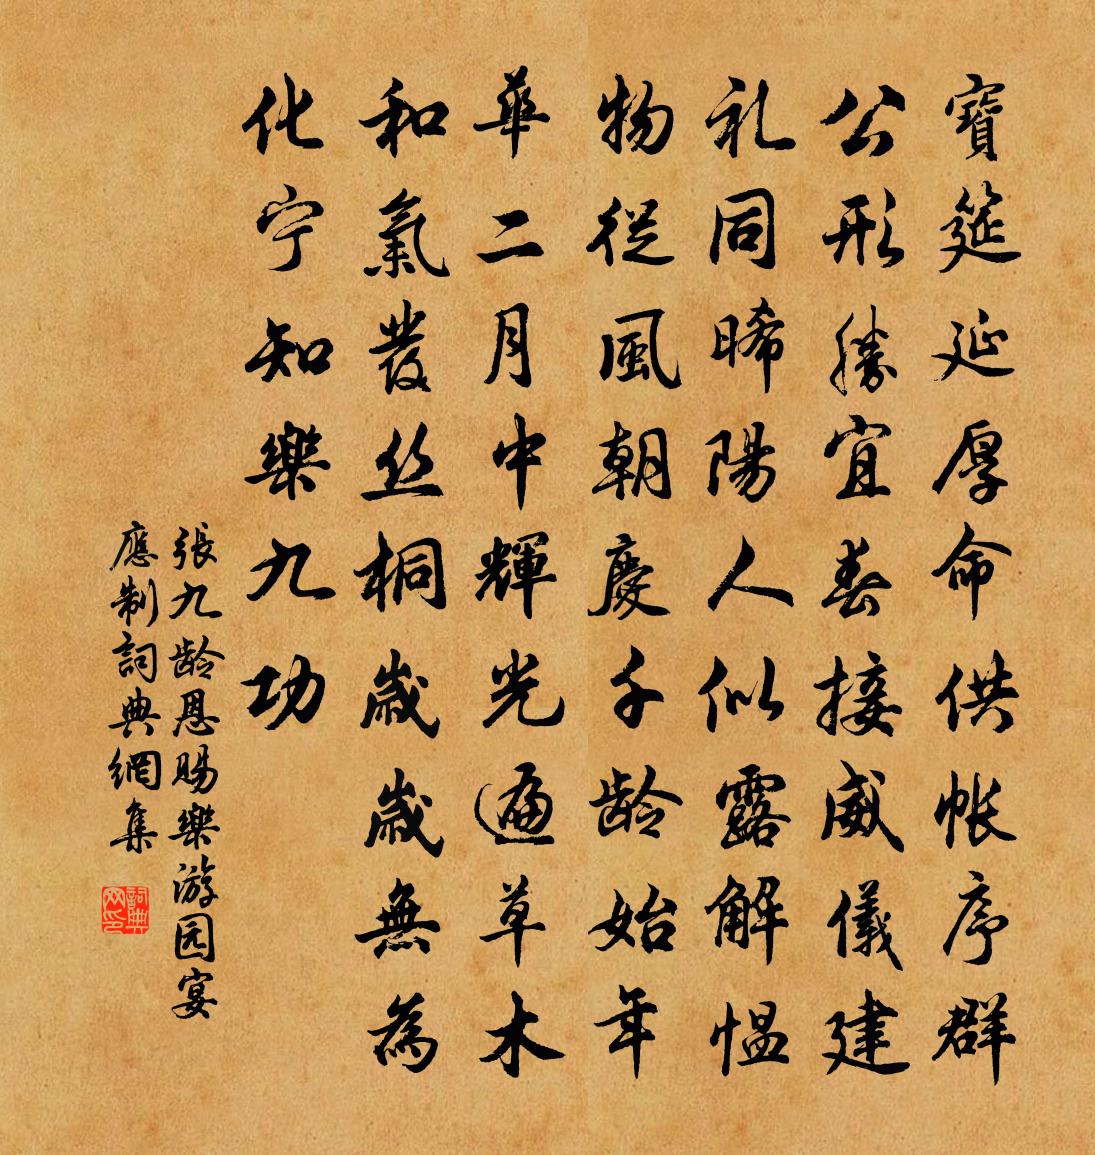 寶筵延厚命供帳序群
公形勝宜春接威儀建
礼同晞陽人似露解愠
物從風朝慶千龄始年
華二月中輝光遍草木
和氣發丝桐歲歲無為
化宁知樂九功
張九龄恩賜樂游园宴
應制詞典網集
詞典网印